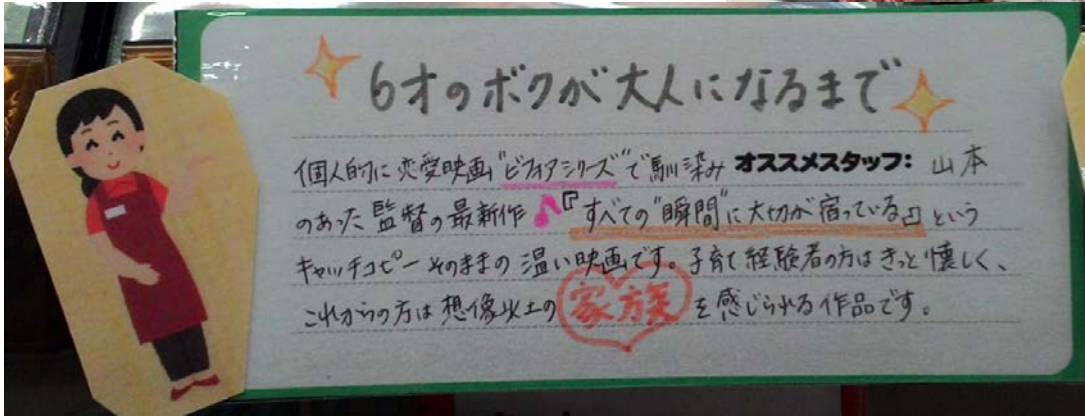 6才のボクが大人になるまで
個人的に恋愛映画"ビフォアシリーズ"で馴染み
オススメスタッフ: 山本
のあった監督の最新作♪『すべての"瞬間"に大切が宿っている』という
キャッチコピーそのままの温い映画です。子育て経験者の方はきっと懐しく、
これからの方は想像以上の家族を感じられる作品です。